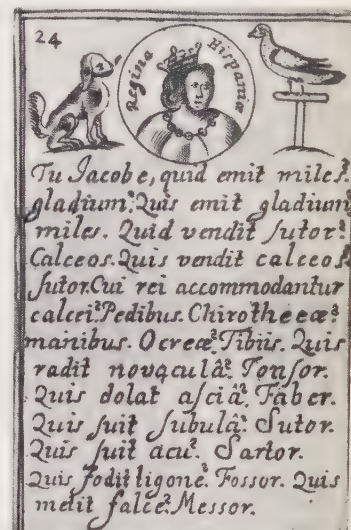 24
Regina Hispaniæ
Tu Jacobe, quid emit miles?
gladium. Quis emit gladium?
miles. Quid vendit ſutor?
Calceos. Quis vendit calceos?
ſutor. Cui rei accommodantur
calcei? Pedibus. Chirotheeæ?
manibus. Ocreæ? Tibiis. Quis
radit novaculâ? Tonſor.
Quis dolat aſciâ? Faber.
Quis ſuit ſubulâ? Sutor.
Quis ſuit acu? Sartor.
Quis fodit ligone? Foſſor. Quis
metit falce? Meſſor.